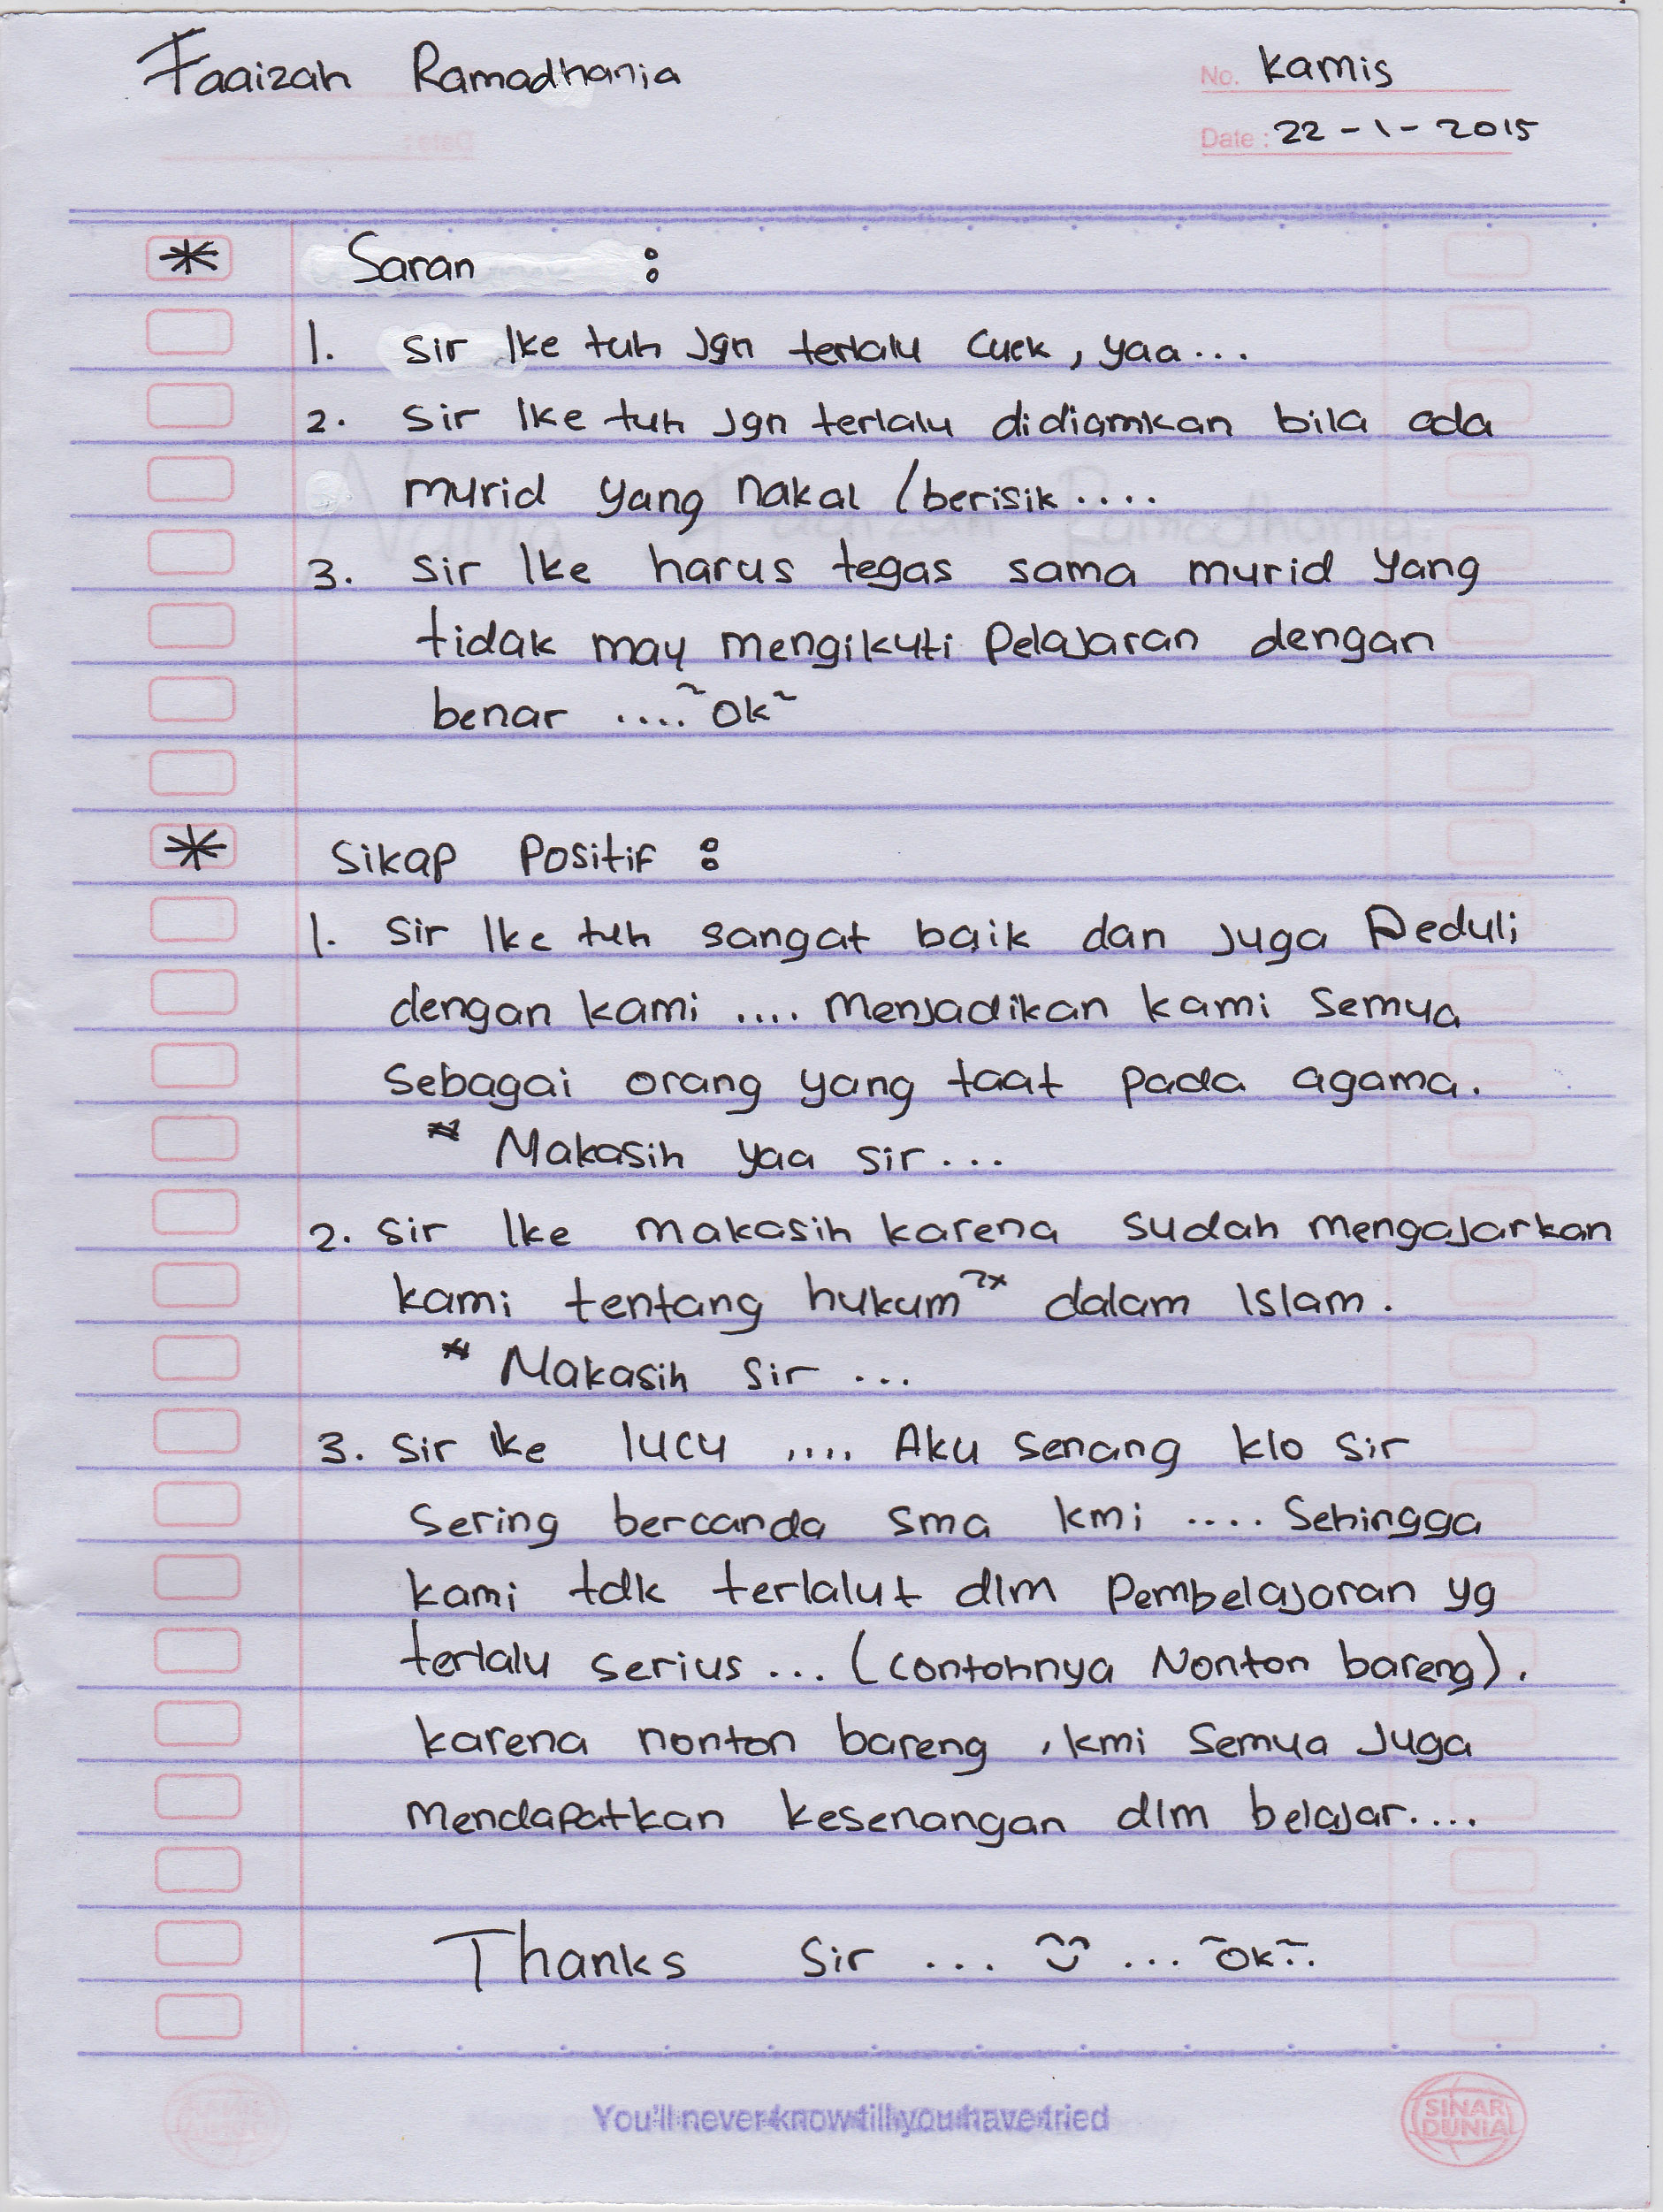 Faaizah Ramadhania
No. Kamis
Date : 22 - 1 - 2015
* Saran :
1. Sir Ike tuh Jgn terlalu Cuek, yaa...
2. Sir Ike tuh Jgn terlalu didiamkan bila ada
murid yang nakal / berisik ....
3. Sir Ike harus tegas sama murid yang
tidak mau mengikuti Pelajaran dengan
benar .... ~Ok~
* Sikap Positif :
1. Sir Ike tuh sangat baik dan Juga Peduli
dengan kami .... Menjadikan kami Semua
Sebagai orang yang taat pada agama.
* Makasih yaa sir ...
2. Sir Ike makasih karena sudah mengajarkan
kami tentang hukum ²ˣ dalam Islam.
* Makasih Sir ...
3. Sir Ike lucu .... Aku Senang klo Sir
Sering bercanda sma kmi .... Sehingga
kami tdk terlalut dlm Pembelajaran yg
terlalu serius ... (Contohnya Nonton bareng).
karena nonton bareng, kmi Semua Juga
Mendapatkan kesenangan dlm belajar....
Thanks Sir ... ... ~Ok~..
You'll never know till you have tried
SINAR
DUNIA